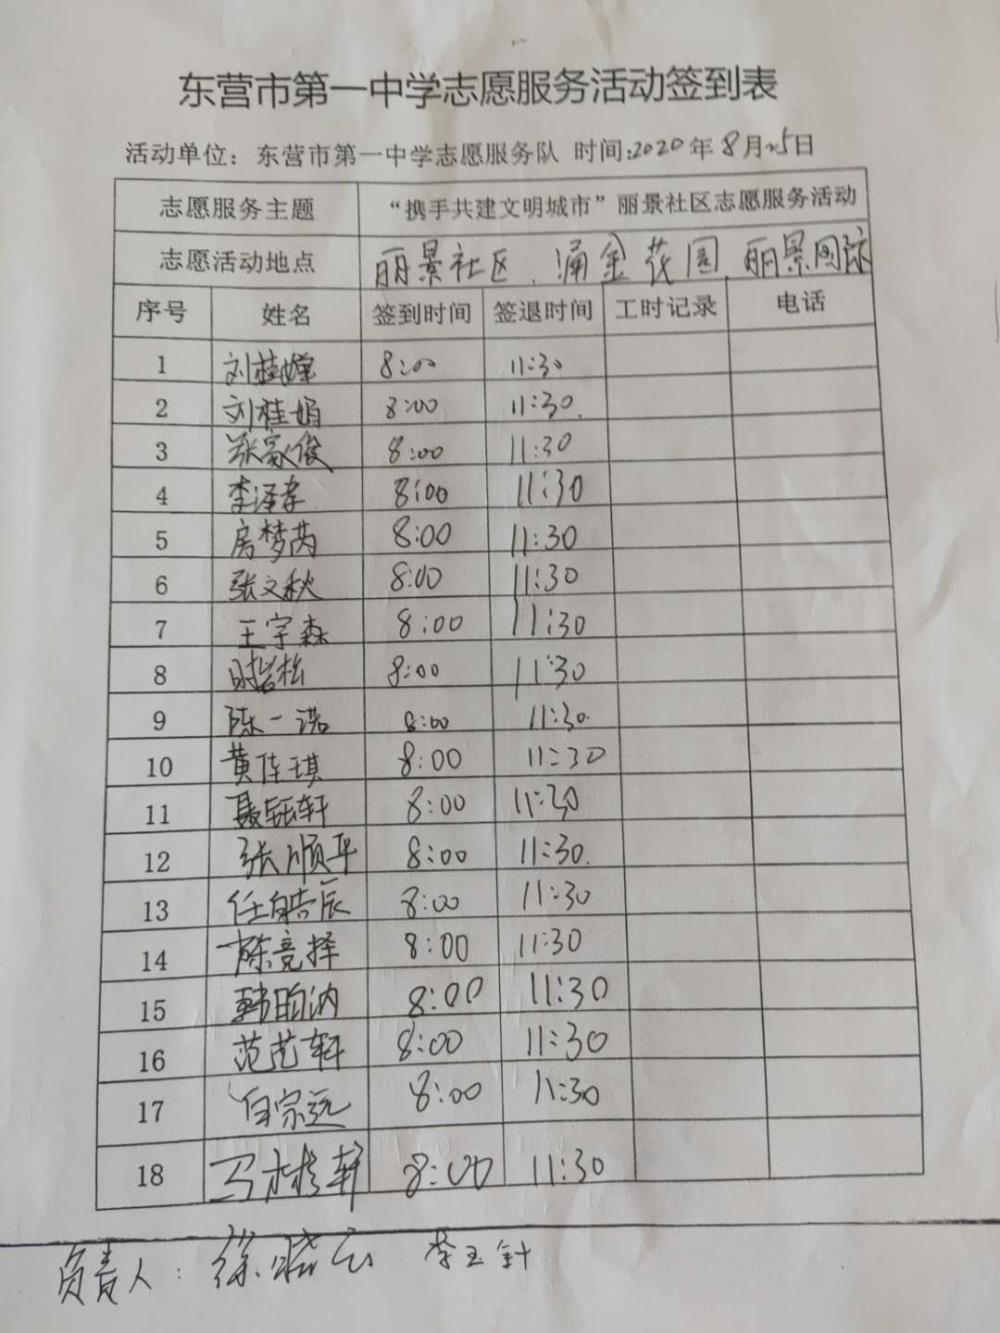 东营市第一中学志愿服务活动签到表
活动单位：东营市第一中学志愿服务队 时间:2020年8月25日
志愿服务主题 “携手共建文明城市”丽景社区志愿服务活动
志愿活动地点 丽景社区、涌金花园、丽景国际
序号 姓名 签到时间 签退时间 工时记录 电话
1 刘桂嫦 8:00 11:30
2 刘桂娟 8:00 11:30
3 张家俊 8:00 11:30
4 李泽孝 8:00 11:30
5 房梦芮 8:00 11:30
6 张文秋 8:00 11:30
7 王宇森 8:00 11:30
8 时岩松 8:00 11:30
9 陈一诺 8:00 11:30
10 黄佳琪 8:00 11:30
11 聂钰轩 8:00 11:30
12 张顺平 8:00 11:30
13 任皓辰 8:00 11:30
14 陈竞择 8:00 11:30
15 韩昀汭 8:00 11:30
16 范艺轩 8:00 11:30
17 白宗远 8:00 11:30
18 马彬轩 8:00 11:30
负责人：徐晓云 李玉针